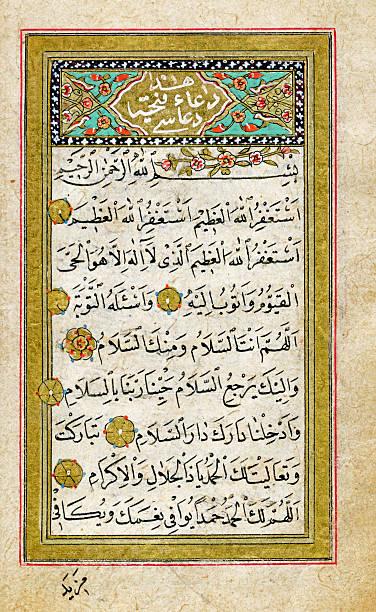 هذا
دعاء فتحيا
دعاسى
بسم الله الرحمن الرحيم
استغفر الله العظيم استغفر الله العظيم
استغفر الله العظيم الذى لا اله الا هو الحى
القيوم واتوب اليه واسئله التوبة
اللهم انت السلام ومنك السلام
واليك يرجع السلام حينا ربنا بالسلام
وادخلنا دارك دار السلام تباركت
وتعاليت لك الحمد ياذا الجلال والاكرام
اللهم لك الحمد حمدا يوافى نعمك ويكافى
مزيد